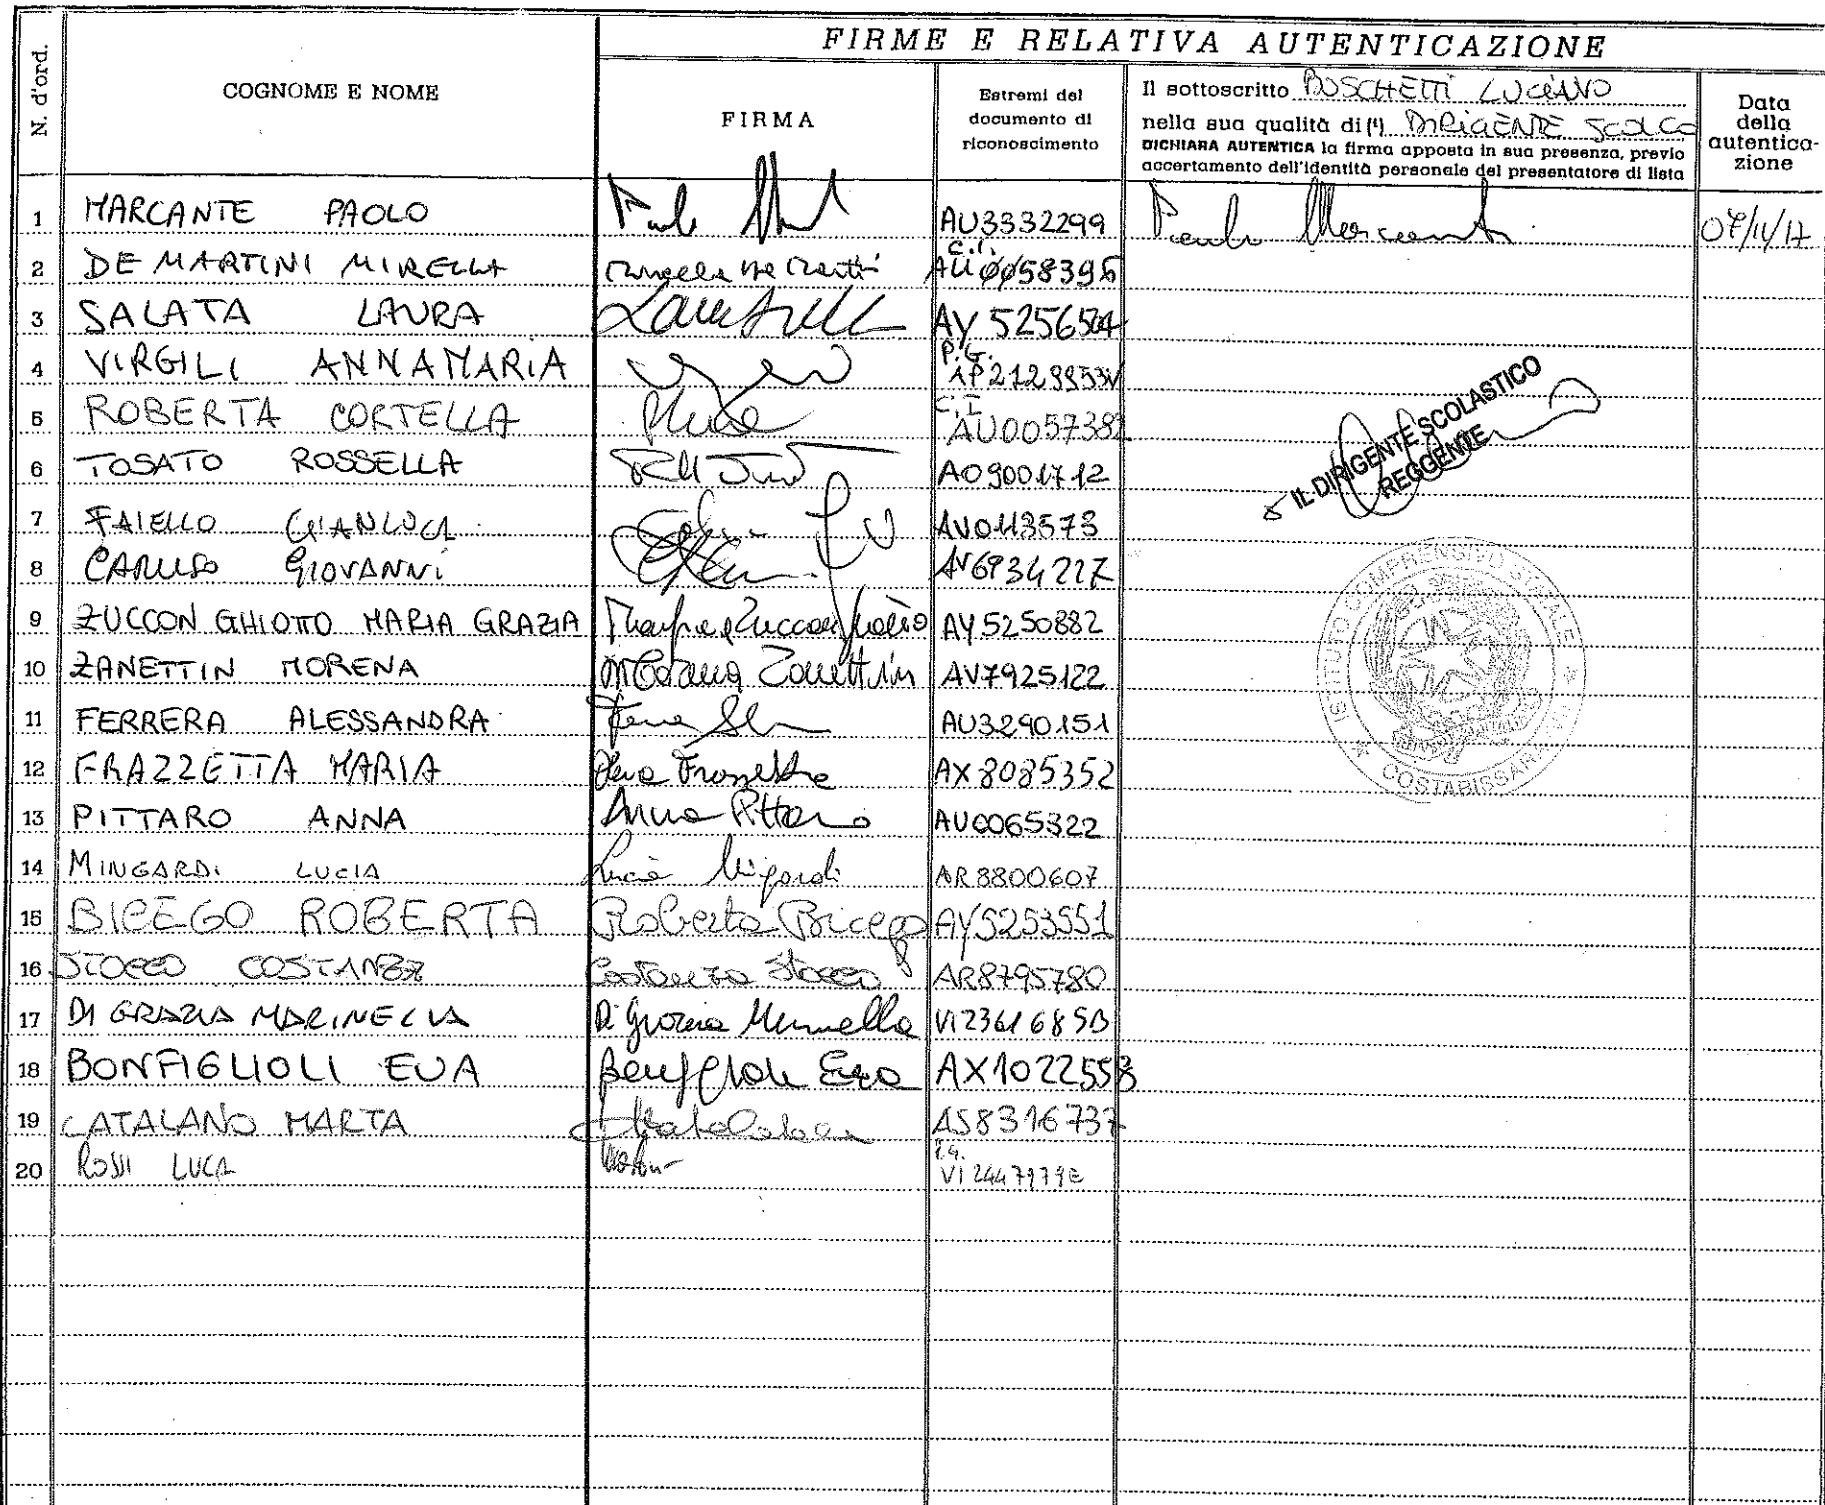 FIRME E RELATIVA AUTENTICAZIONE
N. d'ord.
COGNOME E NOME
FIRMA
Estremi del
documento di
riconoscimento
Il sottoscritto BOSCHETTI LUCIANO
nella sua qualità di (*) DIRIGENTE SCOL.CO
DICHIARA AUTENTICA la firma apposta in sua presenza, previo
accertamento dell'identità personale del presentatore di lista
Data
della
autentica-
zione
1 MARCANTE PAOLO AU3332299 Paolo Marcante 07/11/17
2 DE MARTINI MIRELLA Mirella De Martini C.I. AU0058395
3 SALATA LAURA AY 5256504
4 VIRGILI ANNAMARIA P.G.
5 ROBERTA CORTELLA C.I. AU0057382
6 TOSATO ROSSELLA AO9001712
7 FAIELLO GIANLUCA AV0113573
8 CARUSO GIOVANNI AV6934217
9 ZUCCON GHIOTTO MARIA GRAZIA AY5250882
10 ZANETTIN MORENA Morena Zanettin AV7925122
11 FERRERA ALESSANDRA AU3290151
12 FRAZZETTA MARIA Maria Frazzetta AX8085352
13 PITTARO ANNA Anna Pittaro AU0065322
14 MINGARDI LUCIA Lucia Mingardi AR8800607
15 BICEGO ROBERTA Roberta Bicego AY5253551
16 STOCCO COSTANZA Costanza Stocco AR8795780
17 DI GRAZIA MARINELLA Di Grazia Marinella
18 BONFIGLIOLI EVA Bonfiglioli Eva AX1022558
19 CATALANO MARTA Marta Catalano AS8316737
20 ROSSI LUCA P.G. VI2447979E
IL DIRIGENTE SCOLASTICO
REGGENTE
ISTITUTO COMPRENSIVO STATALE
COSTABISSARA